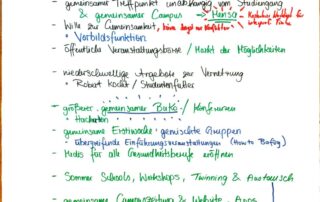 - gemeinsamer Treffpunkt unabhängig vom Studiengang
& gemeinsamer Campus → Hansa
- Wille zur Gemeinsamkeit, keine Angst vor
• Vorbildsfunktion
- öffentliche Veranstaltungsbörse / Markt der Möglichkeiten
- niederschwellige Angebote zur Vernetzung
• Robert Kocht / Studentenfutter
- größerer gemeinsamer BuKo / Konferenzen
• Hackathon
- gemeinsame Einttswoche • gemischte Gruppen
• übergreifende Einführungsveranstaltungen (How to Bafög)
- Medis für alle Gesundheitsberufe eröffnen
- Sommer Schools, Workshops, Twinning & Austausch
- gemeinsame Campuszeitung & Website, Apps